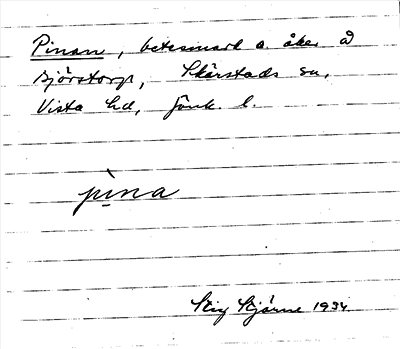 Pinan, betesmark o. åker å
Björstorp, Skärstads sn,
Vista hd, Jönk. l.
pìna
Stig Stjärne 1934